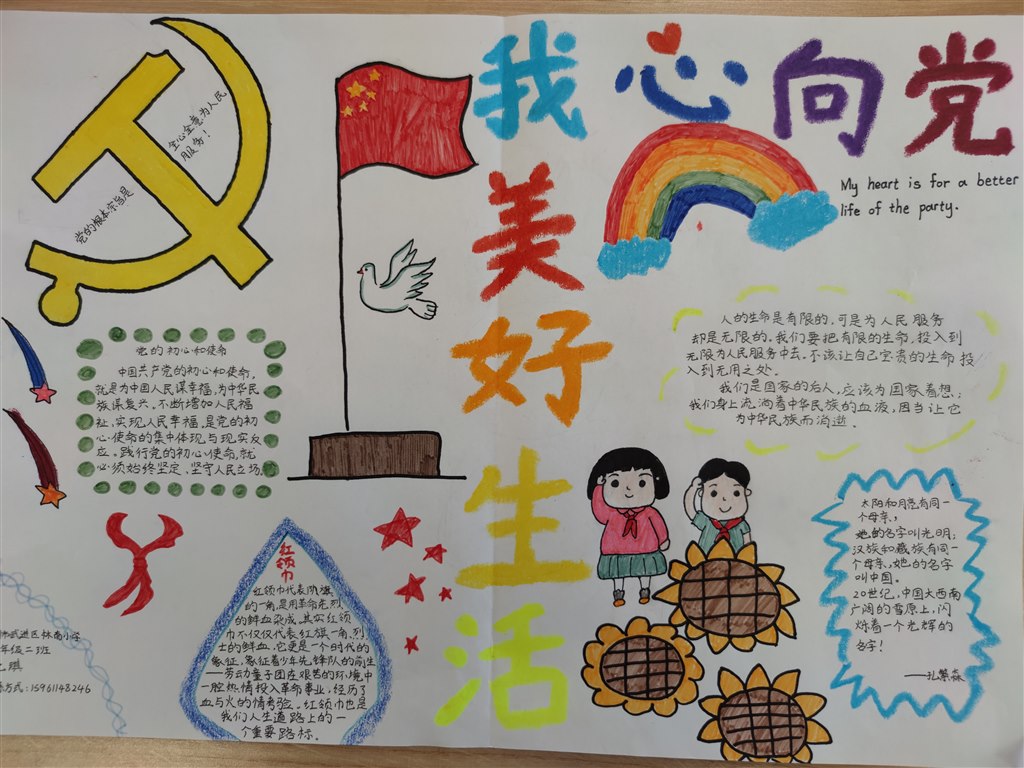 我心向党
美好生活
My heart is for a better
life of the party.
党的根本宗旨是
全心全意为人民
服务!
党的初心和使命
中国共产党的初心和使命,
就是为中国人民谋幸福,为中华民
族谋复兴。不断增加人民福
祉,实现人民幸福,是党的初
心使命的集中体现与现实反
应。践行党的初心使命,就
必须始终坚定,坚守人民立场。
人的生命是有限的,可是为人民服务
却是无限的。我们要把有限的生命,投入到
无限为人民服务中去。不该让自己宝贵的生命投
入到无用之处。
我们是国家的后人,应该为国家着想;
我们身上流淌着中华民族的血液,因当让它
为中华民族而消逝。
红领巾
红领巾代表队旗
的一角,是用革命先烈
的鲜血染成。其实红领
巾不仅仅代表红旗一角,烈
士的鲜血,它更是一个时代的
象征,象征着少年先锋队的前生
——劳动童子团在艰苦的环境中
一腔热情投入革命事业,经历了
血与火的情考验。红领巾也是
我们人生道路上的一
个重要路标。
太阳和月亮有同一
个母亲,
她的名字叫光明;
汉族和藏族有同一
个母亲,她的名字
叫中国。
20世纪,中国大西南
广阔的雪原上,闪
烁着一个光辉的
名字!
——孔繁森
市武进区林南小学
年级二班
琪
方式:15961148246